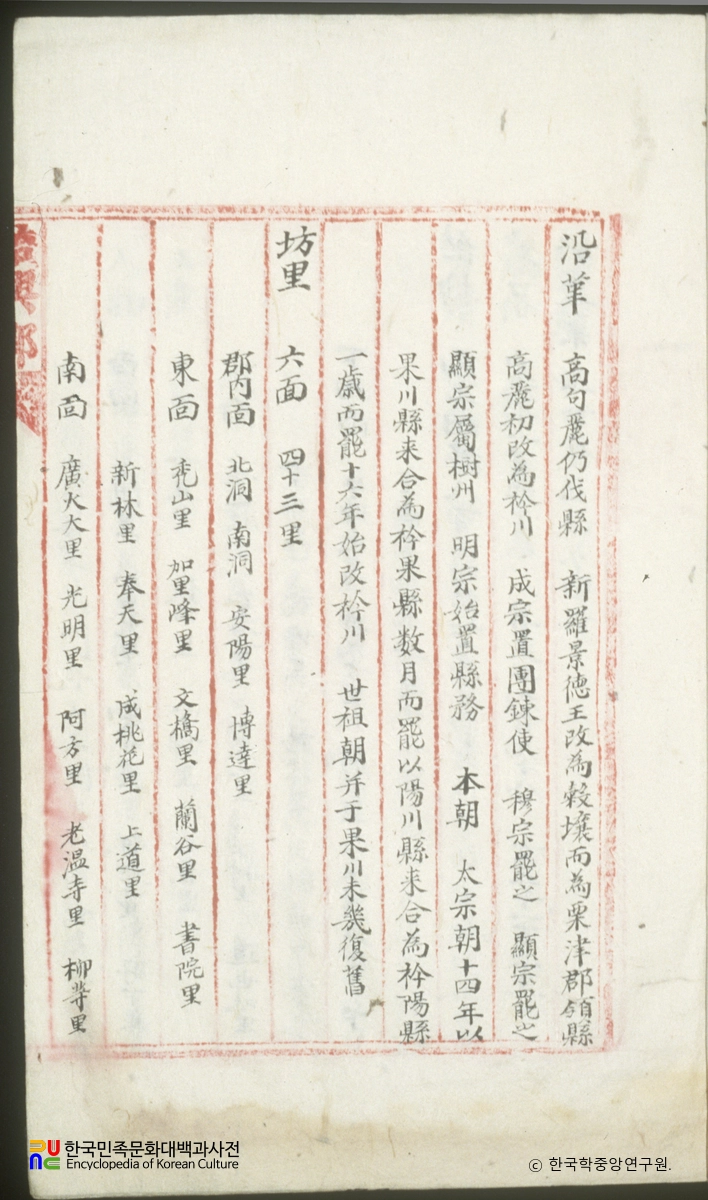 沿革 高句麗仍伐縣 新羅景德王改為穀壤而為栗津郡領縣
高麗初改為衿川 成宗置團鍊使 穆宗罷之 顯宗罷之
顯宗屬樹州 明宗始置縣務 本朝 太宗朝十四年以
果川縣来合為衿果縣数月而罷以陽川縣来合為衿陽縣
一歲而罷十六年始改衿川 世祖朝并于果川未幾復舊
坊里
六面 四十三里
郡内面 北洞 南洞 安陽里 博達里
東面 禿山里 加里峰里 文橋里 蘭谷里 書院里
新林里 奉天里 成桃花里 上道里
南面 廣火大里 光明里 阿方里 老温寺里 柳等里
한국민족문화대백과사전
Encyclopedia of Korean Culture
© 한국학중앙연구원.